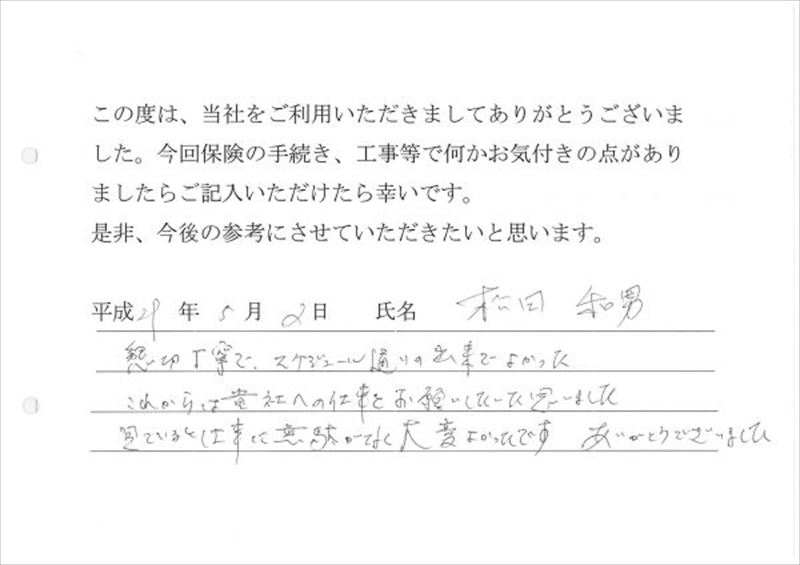 この度は、当社をご利用いただきましてありがとうございま
した。今回保険の手続き、工事等で何かお気付きの点があり
ましたらご記入いただけたら幸いです。
是非、今後の参考にさせていただきたいと思います。
平成21年5月2日 氏名 松田 和男
懇切丁寧で、スケジュール通りの出来でよかった
これからは貴社への仕事をお願いしたいと思いました
見ていると仕事に無駄がなく大変よかったです ありがとうございました